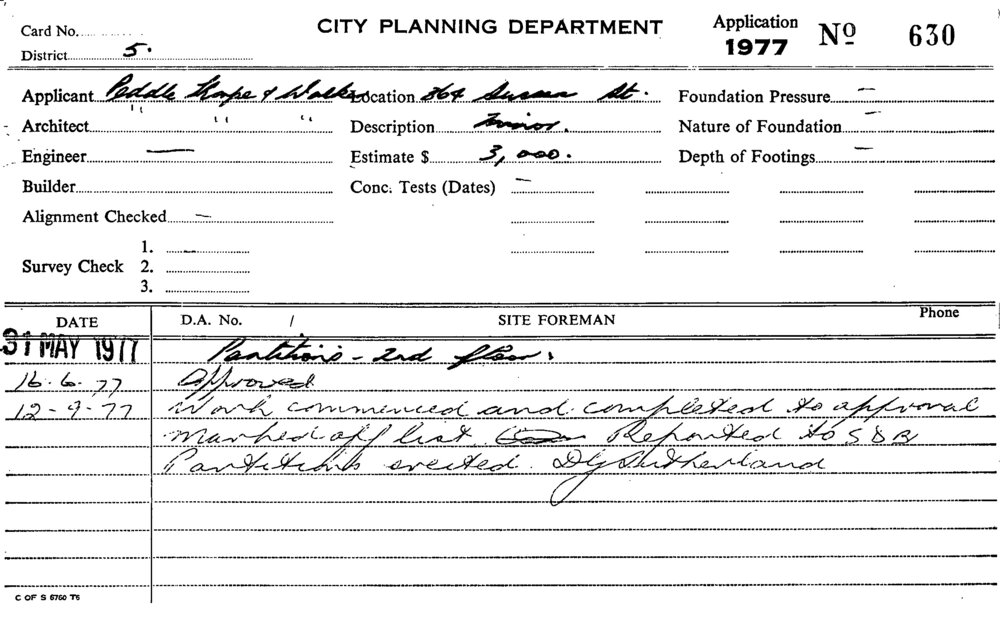 Card No. CITY PLANNING DEPARTMENT Application 1977 Nº 630
District 5.
Applicant Peddle Thorpe & Walker Location 364 Sussex St. Foundation Pressure —
Architect " " " " Description Minor. Nature of Foundation —
Engineer — Estimate $ 3,000. Depth of Footings —
Builder Conc. Tests (Dates) —
Alignment Checked —
1.
Survey Check 2.
3.
DATE D.A. No. / SITE FOREMAN Phone
31 MAY 1977 Partitions - 2nd floor.
16.6.77 Approved
12-9-77 Work commenced and completed to approval
Marked off list Reported to S D R
Partitions erected. D G Sutherland
C OF S 6760 T6